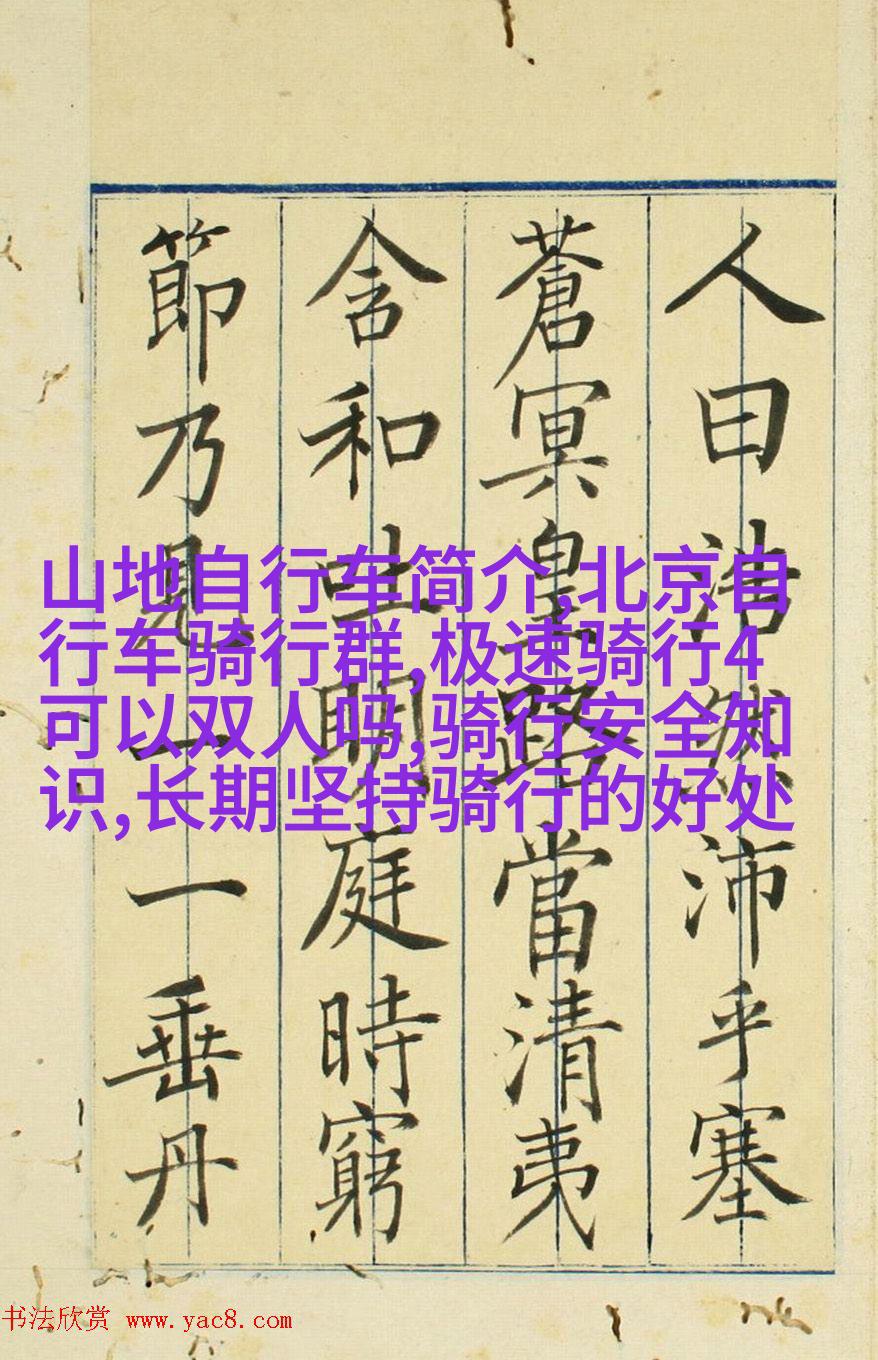 人曰浩然沛乎塞
蒼冥皇路當清夷
含和吐明庭時窮
節乃見一一垂丹
山地自行车简介,北京自
行车骑行群,极速骑行4
可以双人吗,骑行安全知
识,长期坚持骑行的好处
书法欣赏 www.yac8.com